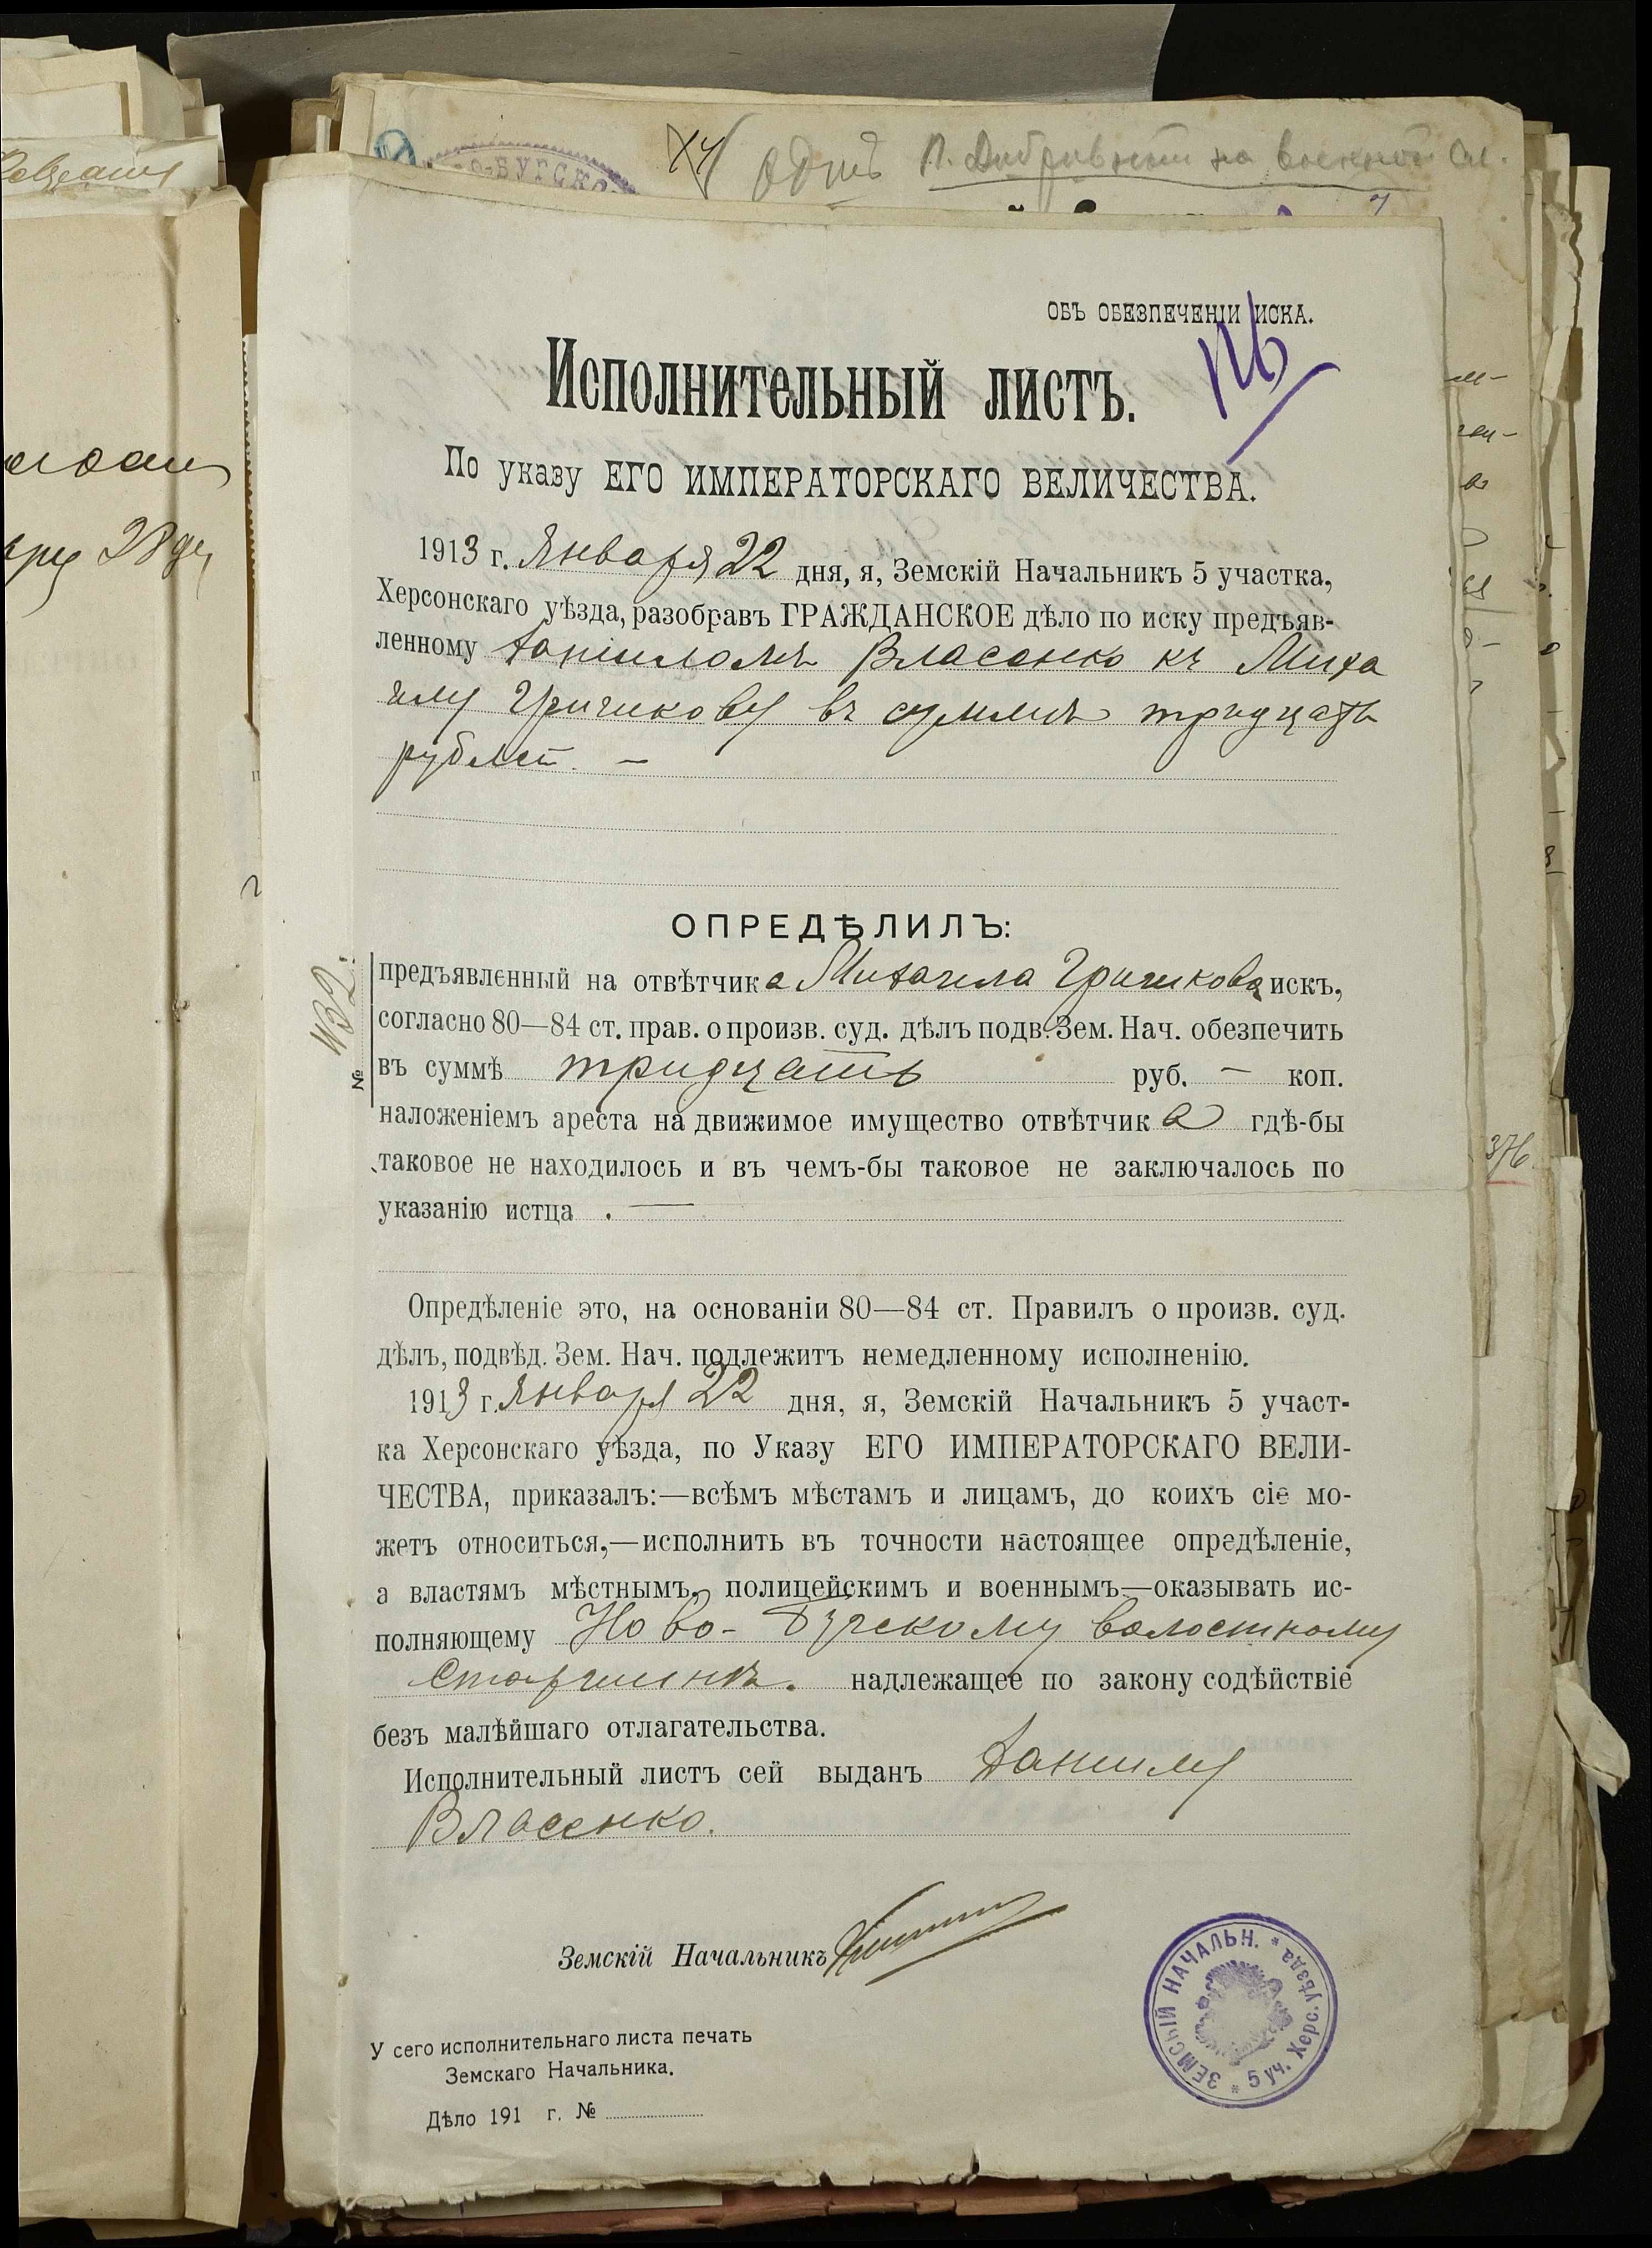 ОБЪ ОБЕЗПЕЧЕНІИ ИСКА.
Исполнительный листъ.
По указу ЕГО ИМПЕРАТОРСКАГО ВЕЛИЧЕСТВА.
1913 г. Января 22 дня, я, Земскій Начальникъ 5 участка,
Херсонскаго уѣзда, разобравъ ГРАЖДАНСКОЕ дѣло по иску предъяв-
ленному Даніиломъ Власенко къ Миха
илу Гричикову въ суммѣ тридцать
рублей. —
ОПРЕДѢЛИЛЪ:
предъявленный на отвѣтчика Михаила Гричикова искъ,
согласно 80—84 ст. прав. о произв. суд. дѣлъ подв. Зем. Нач. обезпечить
въ суммѣ тридцать руб. — коп.
наложеніемъ ареста на движимое имущество отвѣтчика гдѣ-бы
таковое не находилось и въ чемъ-бы таковое не заключалось по
указанію истца . —
№ 132.
Опредѣленіе это, на основаніи 80—84 ст. Правилъ о произв. суд.
дѣлъ, подвѣд. Зем. Нач. подлежитъ немедленному исполненію.
1913 г. Января 22 дня, я, Земскій Начальникъ 5 участ-
ка Херсонскаго уѣзда, по Указу ЕГО ИМПЕРАТОРСКАГО ВЕЛИ-
ЧЕСТВА, приказалъ:—всѣмъ мѣстамъ и лицамъ, до коихъ сіе мо-
жетъ относиться,—исполнить въ точности настоящее опредѣленіе,
а властямъ мѣстнымъ, полицейскимъ и военнымъ—оказывать ис-
полняющему Ново-Бугскому волостному
старшинѣ. надлежащее по закону содѣйствіе
безъ малѣйшаго отлагательства.
Исполнительный листъ сей выданъ Данилу
Власенко.
Земскій Начальникъ
У сего исполнительнаго листа печать
Земскаго Начальника.
Дѣло 191 г. №
ЗЕМСКІЙ НАЧАЛЬН. * 5 уч. Херс. уѣзда *